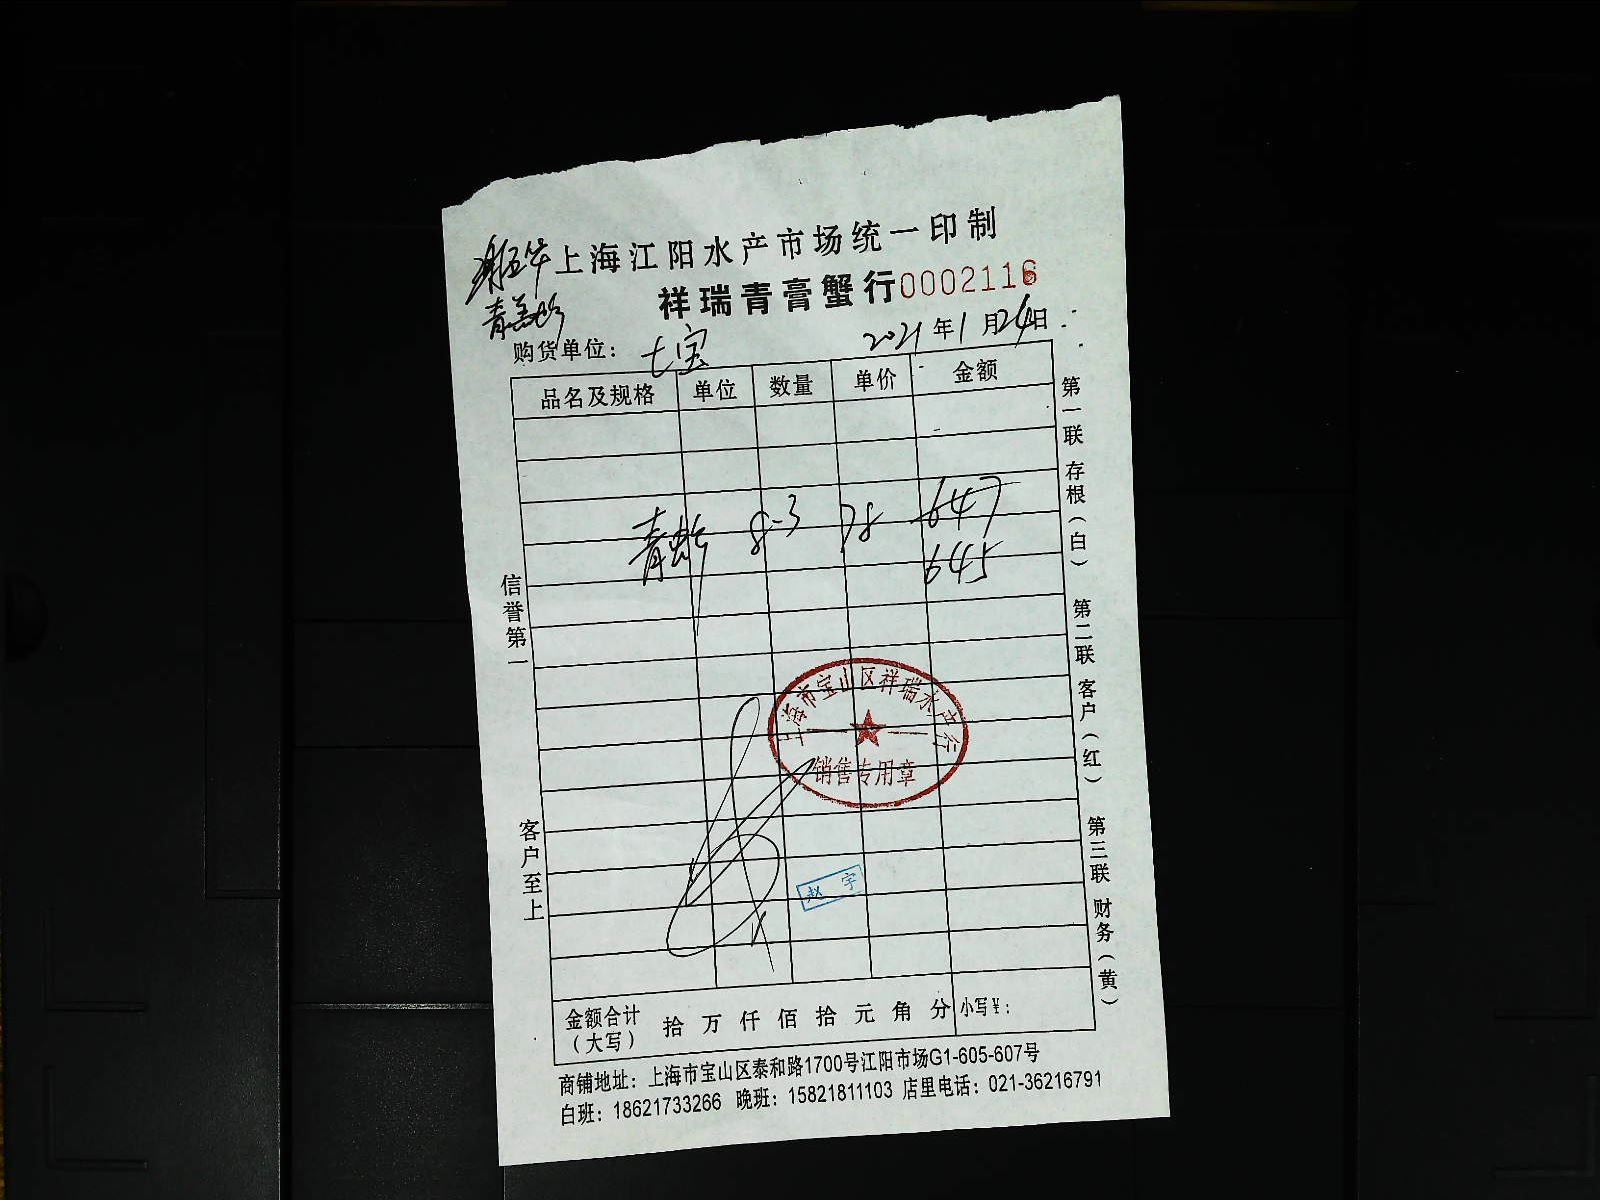 上海江阳水产市场统一印制
祥瑞青膏蟹行0002116
购货单位：七宝 2021年1月24日
品名及规格 单位 数量 单价 金额
青 8-3 78 647
645
信誉第一
客户至上
第一联 存根（白）
第二联 客户（红）
第三联 财务（黄）
上海市宝山区祥瑞水产行
销售专用章
赵宇
金额合计（大写） 拾万仟佰拾元角分 小写¥：
商铺地址：上海市宝山区泰和路1700号江阳市场G1-605-607号
白班：18621733266 晚班：15821811103 店里电话：021-36216791